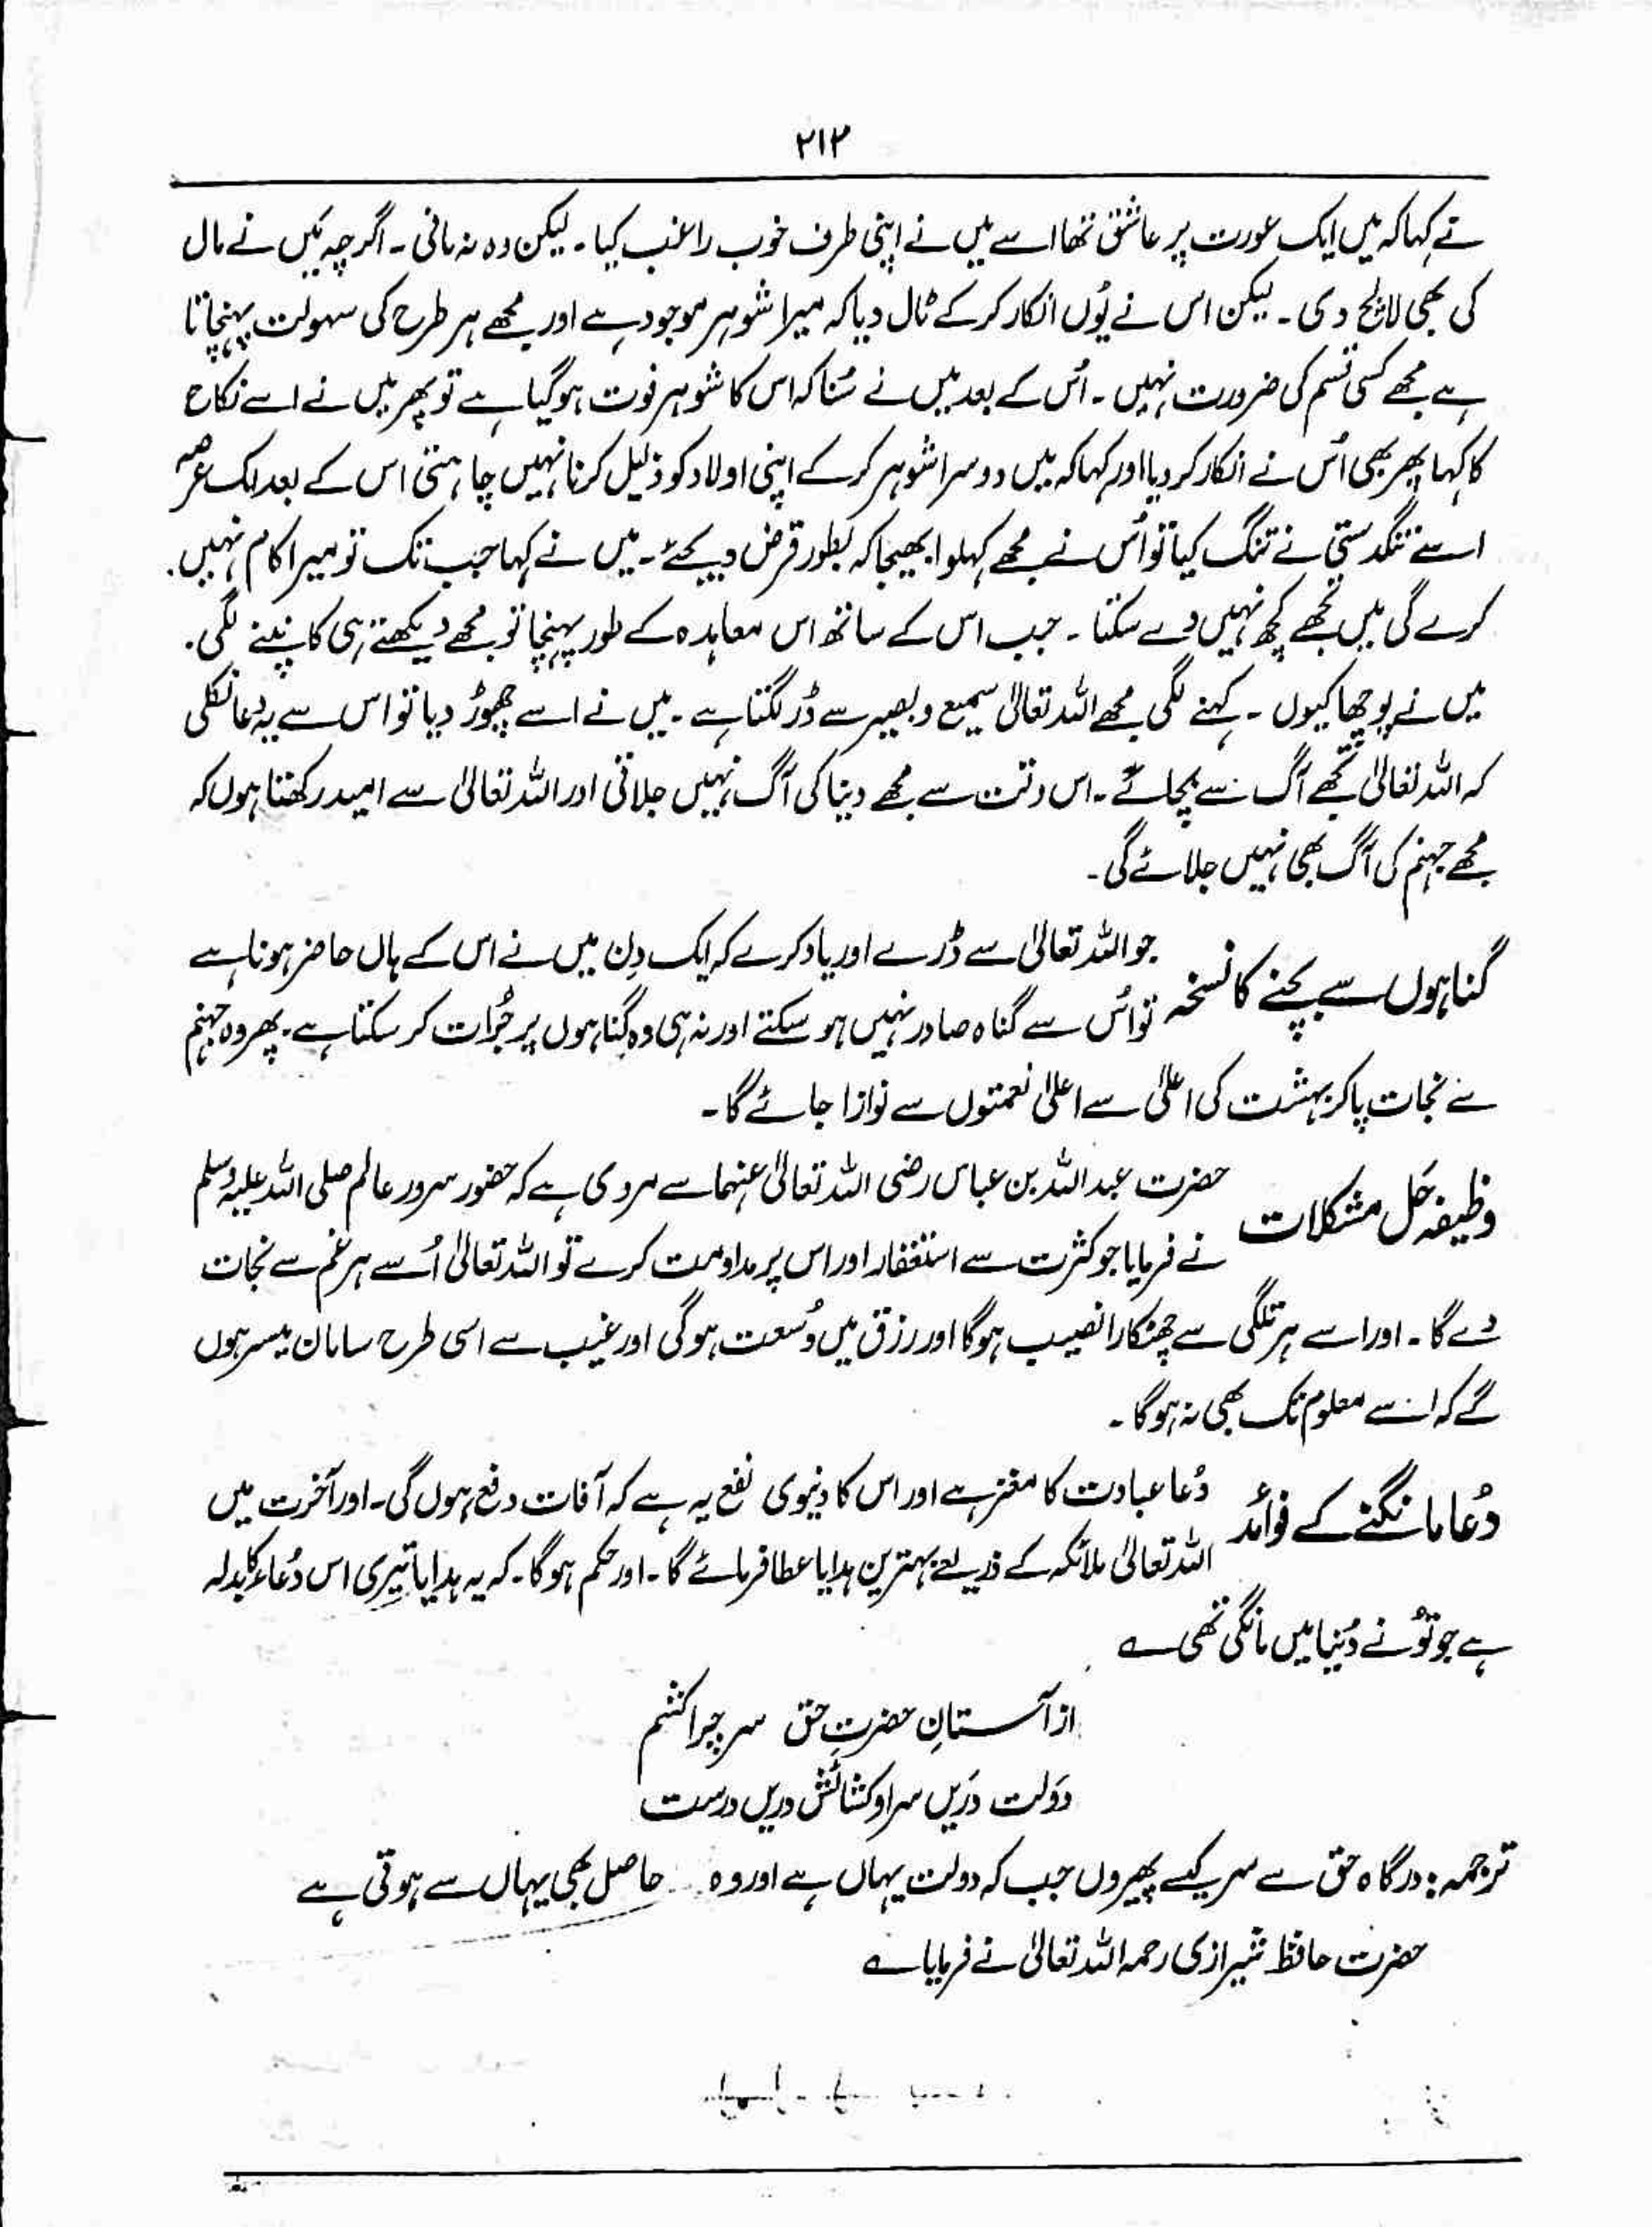 ۲۱۲
نے کہا کہ میں ایک عورت پر عاشق تھا اسے میں نے اپنی طرف خوب راغب کیا۔ لیکن وہ نہ مانی۔ اگرچہ مَیں نے مال
کی بھی لالچ دی۔ لیکن اس نے یُوں انکار کرکے ٹال دیا کہ میرا شوہر موجود ہے اور مجھے ہر طرح کی سہولت پہنچاتا
ہے مجھے کسی قسم کی ضرورت نہیں۔ اُس کے بعد میں نے سُنا کہ اس کا شوہر فوت ہوگیا ہے تو پھر میں نے اسے نکاح
کا کہا پھر بھی اُس نے انکار کر دیا اور کہا کہ میں دوسرا شوہر کرکے اپنی اولاد کو ذلیل کرنا نہیں چاہتی اس کے بعد ایک عرصہ
اسے تنگدستی نے تنگ کیا تو اُس نے مجھے کہلوا بھیجا کہ بطور قرض دیجئے۔ میں نے کہا جب تک تو میرا کام نہیں۔
کرے گی میں تجھے کچھ نہیں دے سکتا۔ جب اس کے ساتھ اس معاہدہ کے طور پہنچا تو مجھے دیکھتے ہی کانپنے لگی۔
میں نے پوچھا کیوں۔ کہنے لگی مجھے اللہ تعالیٰ سمیع و بصیر سے ڈر لگتا ہے۔ میں نے اسے چھوڑ دیا تو اس سے یہ دعا نکلی
کہ اللہ تعالیٰ تجھے آگ سے بچائے۔ اس وقت سے مجھے دنیا کی آگ نہیں جلاتی اور اللہ تعالیٰ سے امید رکھتا ہوں کہ
مجھے جہنم کی آگ بھی نہیں جلائے گی۔
گناہوں سے بچنے کا نسخہ
جو اللہ تعالیٰ سے ڈرے اور یاد کرے کہ ایک دِن میں نے اس کے ہاں حاضر ہونا ہے
تو اُس سے گناہ صادر نہیں ہو سکتے اور نہ ہی وہ گناہوں پر جُرأت کر سکتا ہے۔ پھر وہ جہنم
سے نجات پاکر بہشت کی اعلیٰ سے اعلیٰ نعمتوں سے نوازا جائے گا۔
وظیفہ حَل مشکلات
حضرت عبداللہ بن عباس رضی اللہ تعالیٰ عنہما سے مروی ہے کہ حضور سرور عالم صلی اللہ علیہ وسلم
نے فرمایا جو کثرت سے استغفار اور اس پر مداومت کرے تو اللہ تعالیٰ اُسے ہر غم سے نجات
دے گا۔ اور اسے ہر تنگی سے چھٹکارا نصیب ہوگا اور رزق میں وُسعت ہوگی اور غیب سے اسی طرح سامان میسر ہوں
گے کہ اسے معلوم تک بھی نہ ہوگا۔
دُعا مانگنے کے فوائد
دُعا عبادت کا مغز ہے اور اس کا دنیوی نفع یہ ہے کہ آفات دفع ہوں گی۔ اور آخرت میں
اللہ تعالیٰ ملائکہ کے ذریعے بہترین ہدایا عطا فرمائے گا۔ اور حکم ہوگا۔ کہ یہ ہدایا تیری اس دُعاء کا بدلہ
ہے جو تُو نے دُنیا میں مانگی تھی ؎
از آستانِ حضرتِ حق سر چرا کشم
دَولت درَیں سرا و کشائش دریں درست
ترجمہ: درگاہ حق سے سر کیسے پھیروں جب کہ دولت یہاں ہے اور وہ حاصل بھی یہاں سے ہوتی ہے
حضرت حافظ شیرازی رحمہ اللہ تعالیٰ نے فرمایا ؎